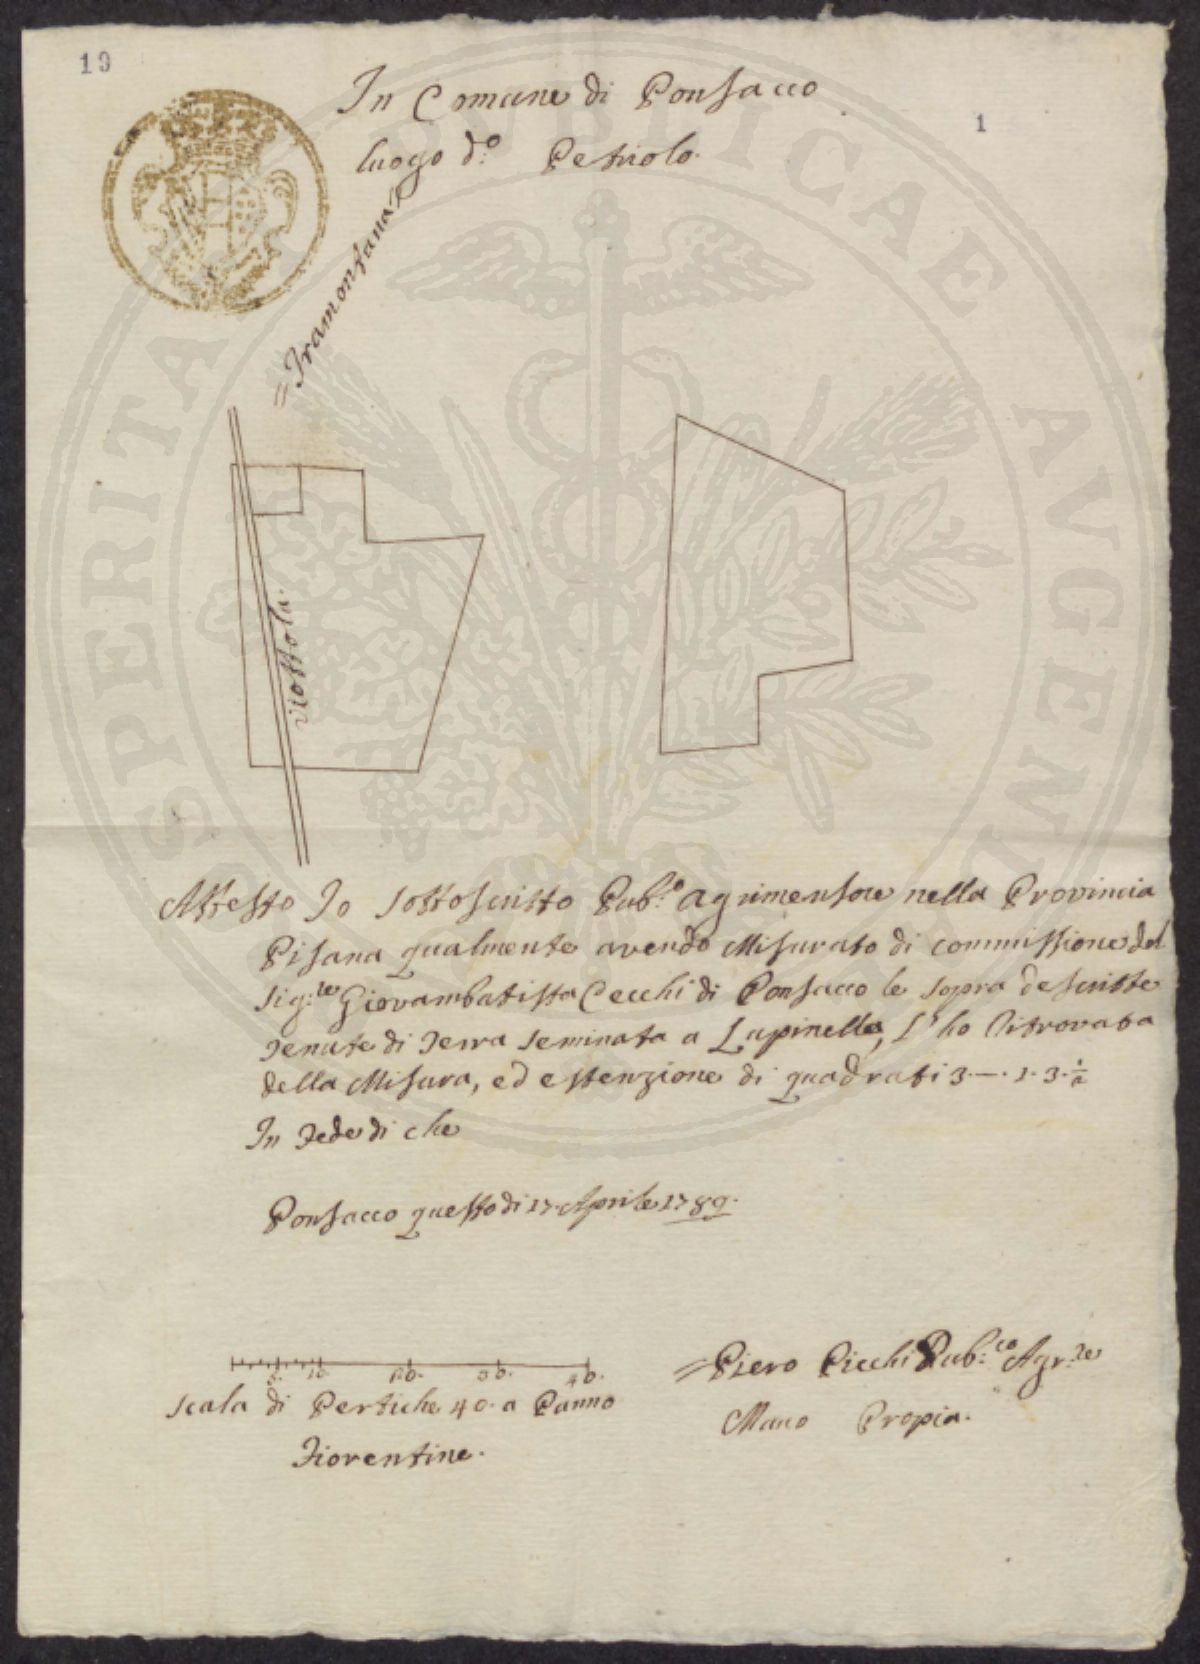 19
1
In Comune di Ponsacco
luogo d.º Petriolo.
= Tramontana
viottola.
Attesto Io sottoscritto Pub.º Agrimensore nella Provincia
Pisana qualmente avendo Misurato di commissione del
Sig.re Giovambatista Cecchi di Ponsacco le sopra descritte
Tenute di Terra seminata a Lupinella, l'ho ritrovata
della Misura, ed estenzione di quadrati 3.—.1.3.½
In Fede di che
Ponsacco questo di 17 Aprile 1789.
5. 10. 20. 30. 40.
Scala di Pertiche 40. a Panno
Fiorentine.
= Piero Picchi Pub.co Agr.re
Mano Propia.
PROSPERITATI PVBLICAE AVGENDAE